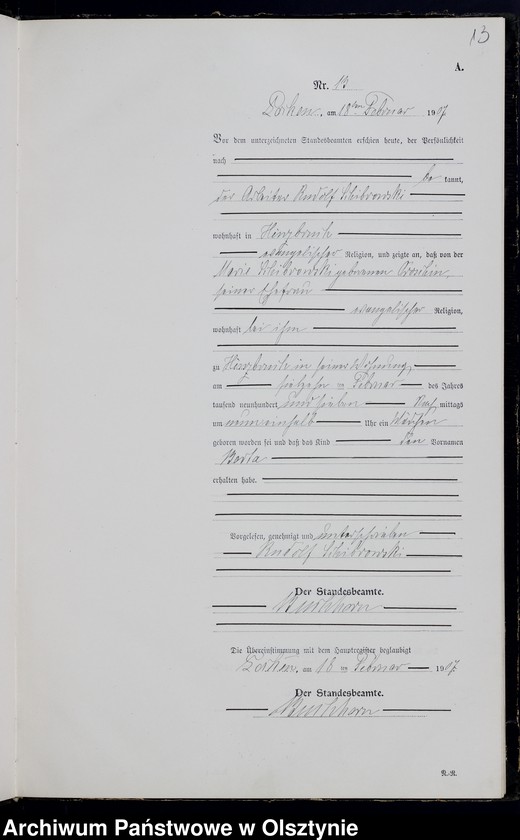 13
A.
Nr. 13
am 18ten Februar 1907
Vor dem unterzeichneten Standesbeamten erschien heute, der Persönlichkeit
nach
be kannt,
der Arbeiter Rudolf
wohnhaft in
evangelischer Religion, und zeigte an, daß von der
Marie geborenen
seiner Ehefrau
evangelischer Religion,
wohnhaft bei ihm
zu in seiner Wohnung
am ten Februar des Jahres
tausend neunhundert und sieben Nach mittags
um neuneinhalb Uhr ein Mädchen
geboren worden sei und daß das Kind den Vornamen
Berta
erhalten habe.
Vorgelesen, genehmigt und unterschrieben
Rudolf
Der Standesbeamte.
Die Übereinstimmung mit dem Hauptregister beglaubigt
am 18 ten Februar 1907
Der Standesbeamte.
Archiwum Państwowe w Olsztynie